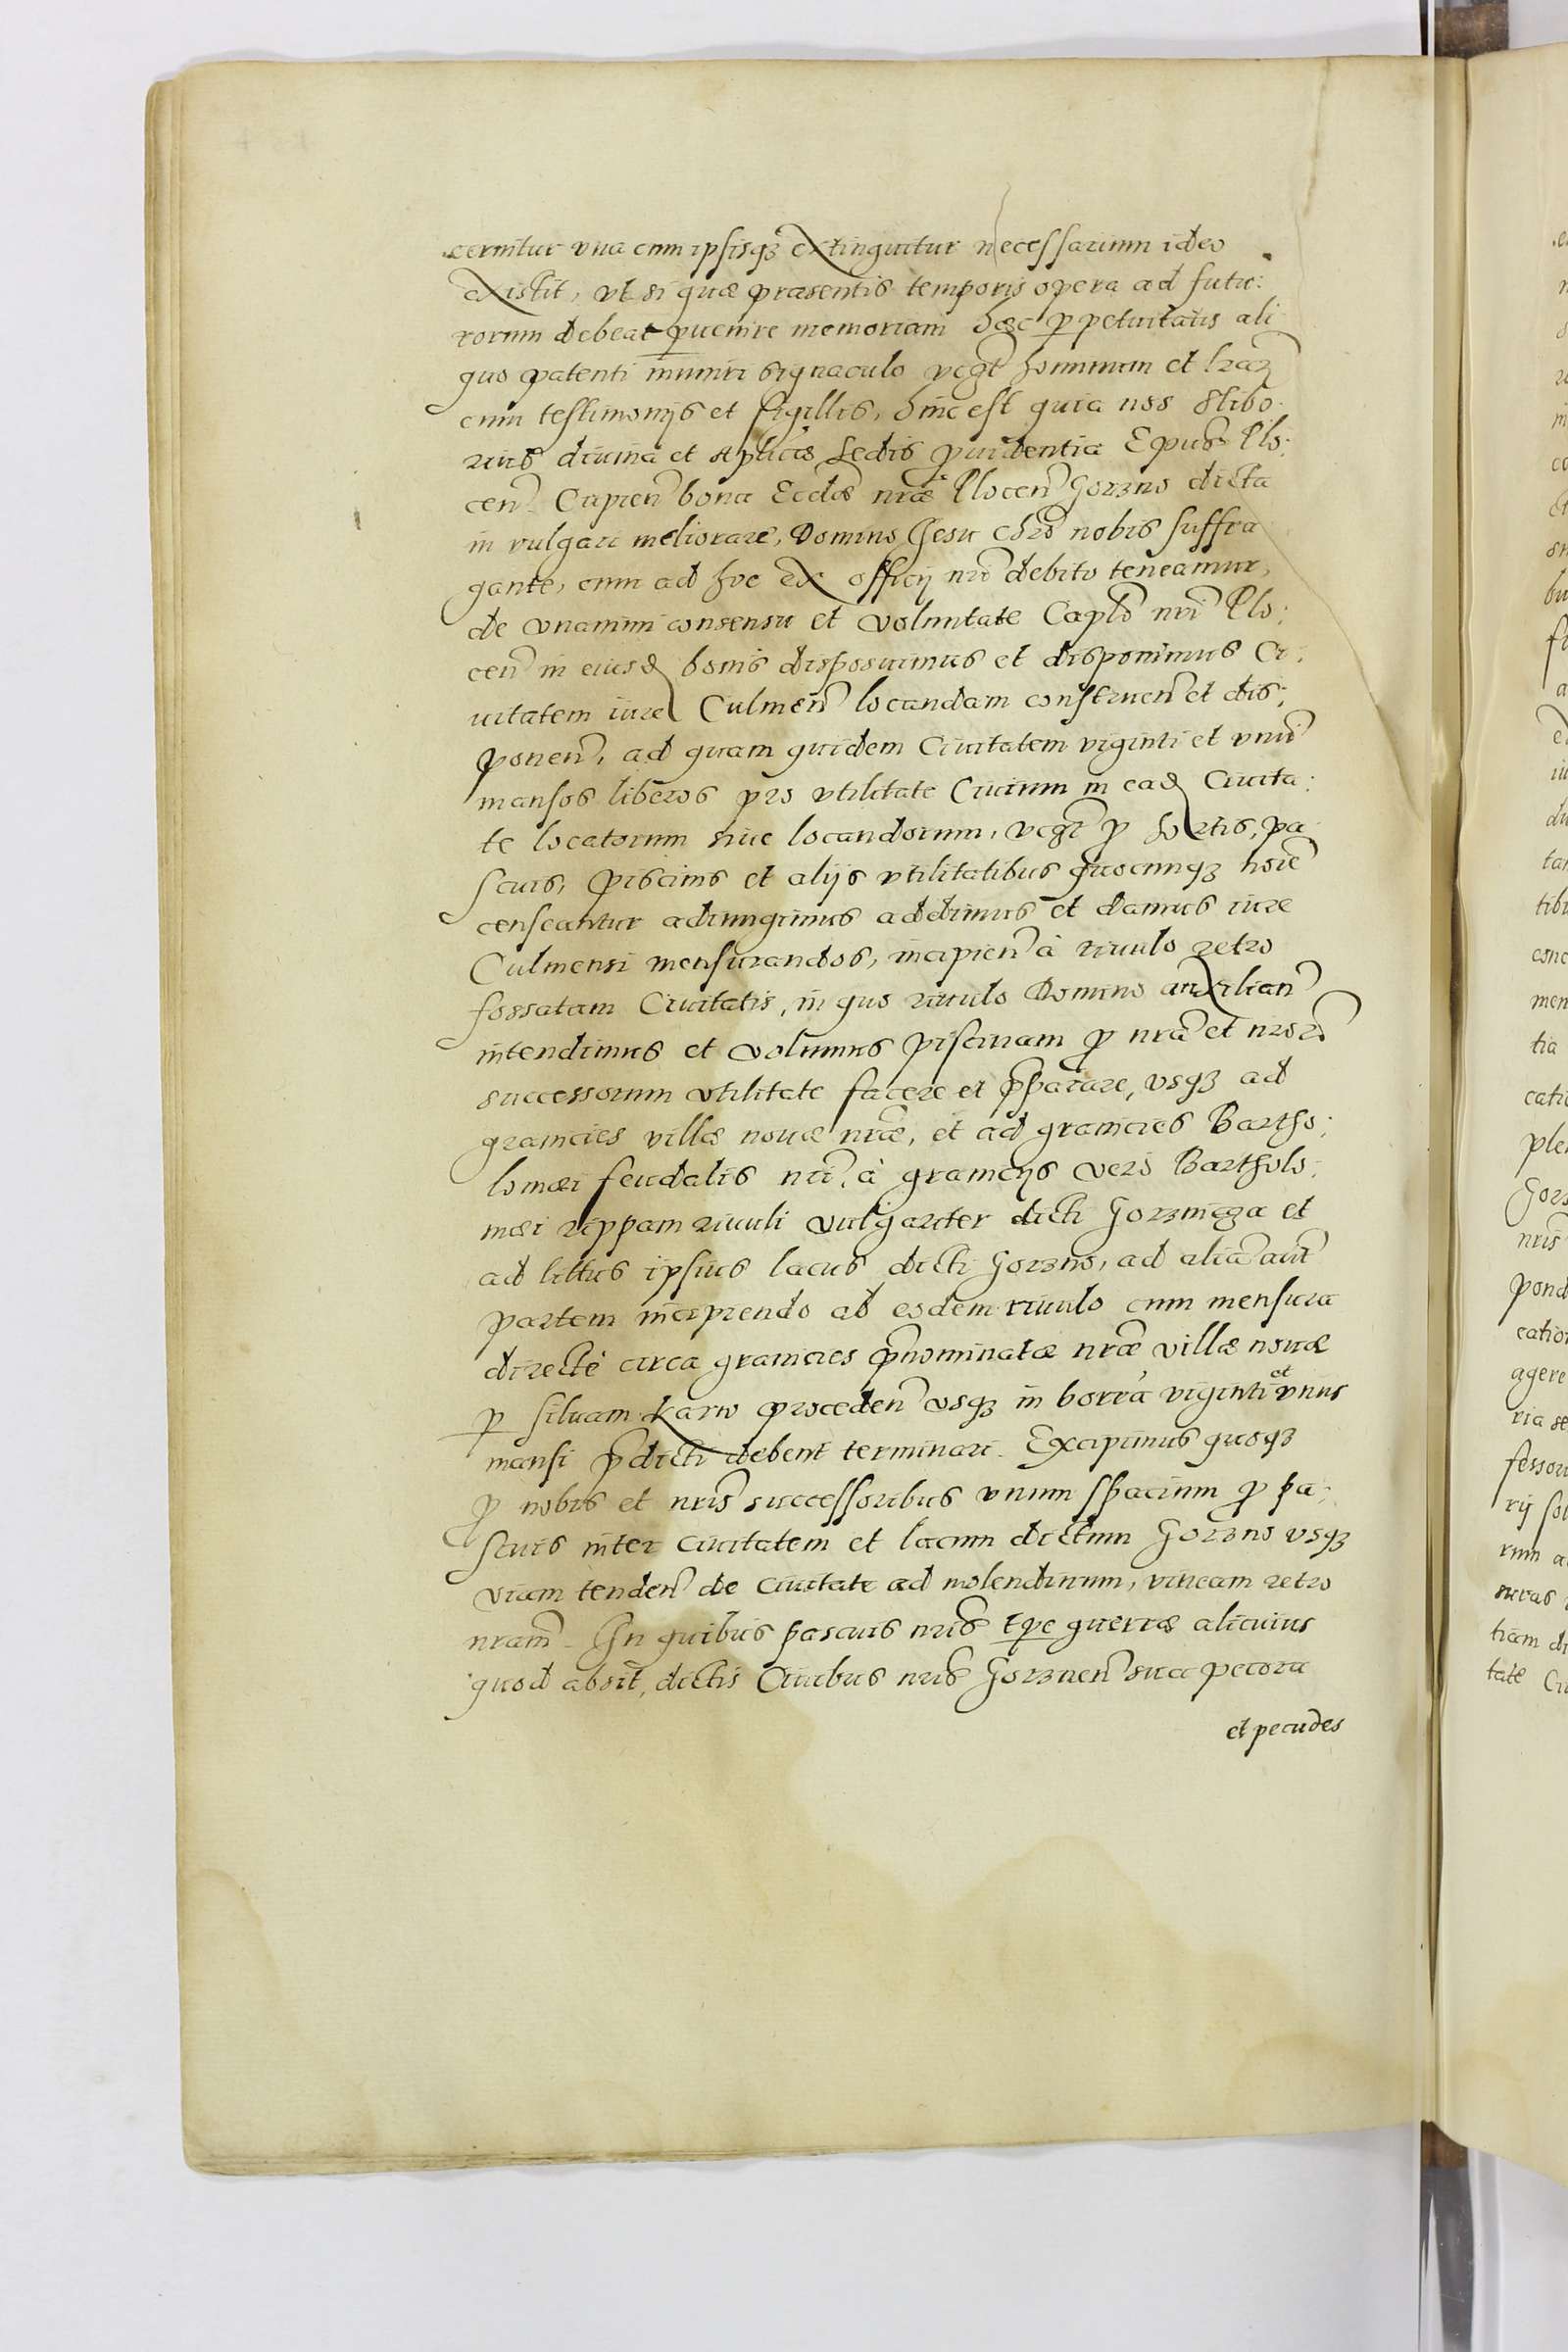 cernitur vna cum ipsisqꝫ extinguitur necessarium ideo
existit, vt si quæ præsentis temporis opera ad futu:
rorum debeat ꝑuenire memoriam hæc ꝑpetuitatis ali
quo patenti muniri signaculo vcꝫt hominum et lraꝝ
cum testimonijs et sigillis, hinc est quia nos Stibo:
rius diuina et Aplicæ Sedis ꝓuidentia Epus Plo:
cen̄ Cupien̄ bona Ecclæ nræ Plocen̄ Gorzno dicta
in vulgari meliorare, Domino Jesu Chro nobis suffra
gante, cum ad hoc ex officij nri debito teneamur,
de vnanimi consensu et voluntate Capli nri Plo:
cen̄ in eiusd bonis disposuimus et disponimus Ci:
uitatem iure Culmen̄ locandam construen̄ et dis:
ponen̄, ad quam quidem Ciuitatem viginti et vnū
mansos liberos pro vtilitate Ciuium in ead Ciuita:
te locatorum siue locandorum, vcꝫt ꝓ hortis, pa
scuis, piscinis et alijs vtilitatibus quocunqꝫ noīe
censeantur adiungimus addimus et damus iure
Culmensi mensurandos, incipien̄ à riuulo retro
fossatam Ciuitatis, in quo riuulo Domino auxilian̄
intendimus et volumus piscinam ꝓ nra et nroꝝ
successorum vtilitate facere et p̄parare, vsqꝫ ad
granicies villæ nouæ nræ, et ad granicies Bartho:
lomæi feudalis nri, à granicijs vero Bartholo:
mæi rippam riuuli vulgariter dicti Gorznicza et
ad littus ipsius lacus dicti Gorzno, ad aliā aut̄
partem incipiendo ab eodem riuulo cum mensura
directè circa granicies p̄nominatæ nræ villæ nouæ
ꝑ siluam Karw proceden̄ vsqꝫ in borrā viginti et vnus
mansi p̄dicti debent terminari. Excipimus quoqꝫ
ꝓ nobis et nris successoribus vnum spacium ꝓ pa:
scuis inter Ciuitatem et lacum dictum Gorzno vsqꝫ
viam tenden̄ de Ciuitate ad molendinum, vineam retro
nram. In quibus pascuis nris tpe guerræ alicuius
quod absit, dictis Ciuibus nris Gorznen̄ sua pecora
et pecudes